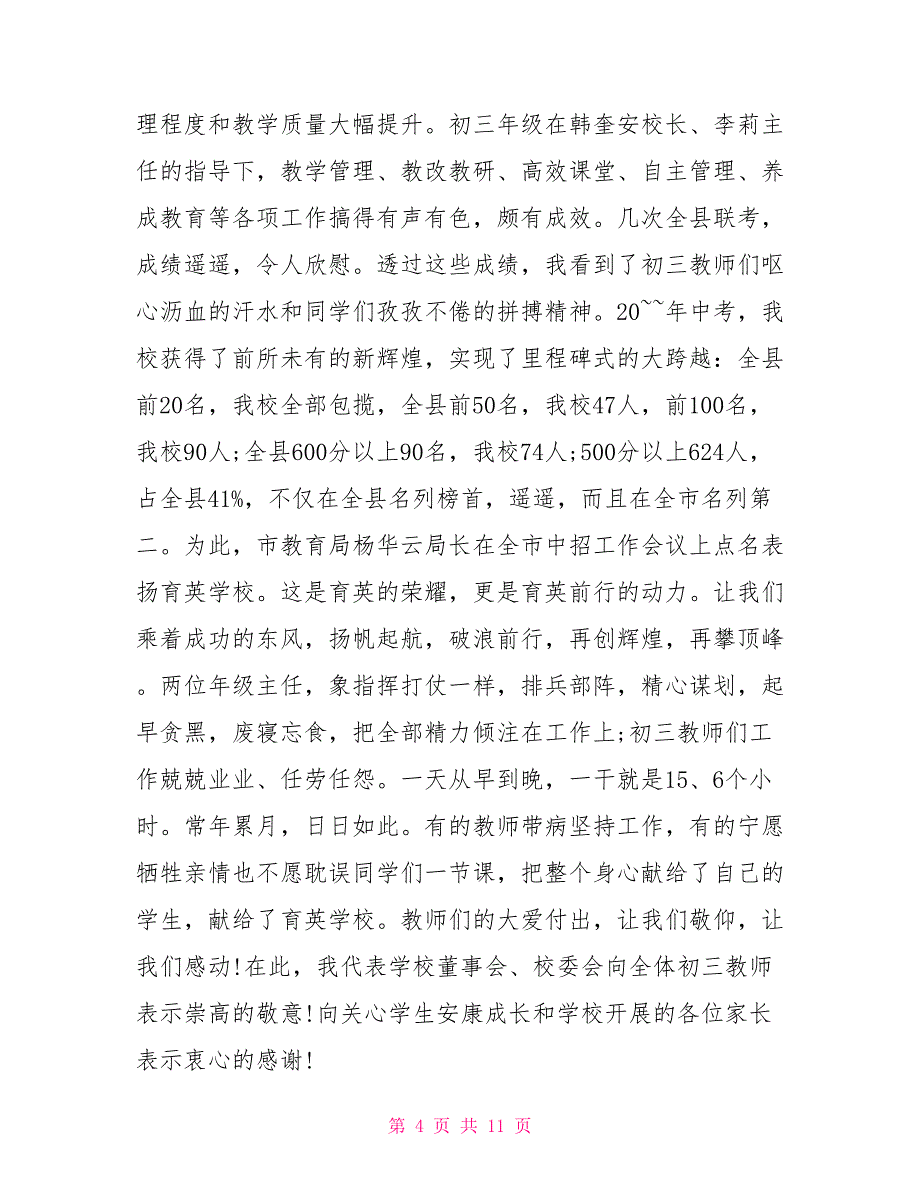 理程度和教学质量大幅提升。初三年级在韩奎安校长、李莉主
任的指导下，教学管理、教改教研、高效课堂、自主管理、养
成教育等各项工作搞得有声有色，颇有成效。几次全县联考，
成绩遥遥，令人欣慰。透过这些成绩，我看到了初三教师们呕
心沥血的汗水和同学们孜孜不倦的拼搏精神。20~~年中考，我
校获得了前所未有的新辉煌，实现了里程碑式的大跨越：全县
前20名，我校全部包揽，全县前50名，我校47人，前100名，
我校90人;全县600分以上90名，我校74人;500分以上624人，
占全县41%，不仅在全县名列榜首，遥遥，而且在全市名列第
二。为此，市教育局杨华云局长在全市中招工作会议上点名表
扬育英学校。这是育英的荣耀，更是育英前行的动力。让我们
乘着成功的东风，扬帆起航，破浪前行，再创辉煌，再攀顶峰
。两位年级主任，象指挥打仗一样，排兵部阵，精心谋划，起
早贪黑，废寝忘食，把全部精力倾注在工作上;初三教师们工
作兢兢业业、任劳任怨。一天从早到晚，一干就是15、6个小
时。常年累月，日日如此。有的教师带病坚持工作，有的宁愿
牺牲亲情也不愿耽误同学们一节课，把整个身心献给了自己的
学生，献给了育英学校。教师们的大爱付出，让我们敬仰，让
我们感动!在此，我代表学校董事会、校委会向全体初三教师
表示崇高的敬意!向关心学生安康成长和学校开展的各位家长
表示衷心的感谢!
第 4 页 共 11 页